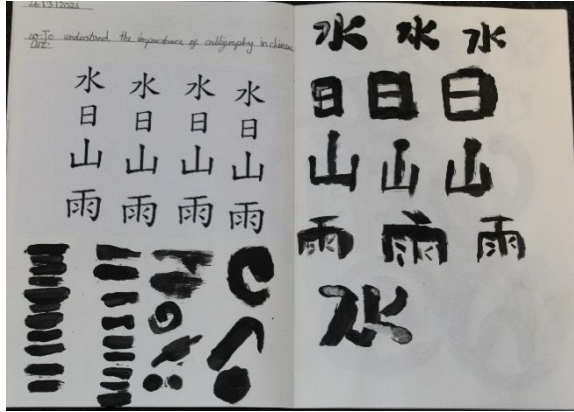 26|3|2024
LO-To understand the importance of calligraphy in chinese
art.
水 水 水 水
日 日 日 日
山 山 山 山
雨 雨 雨 雨
水 水 水
日 日 日
山 山 山
雨 雨 雨
水